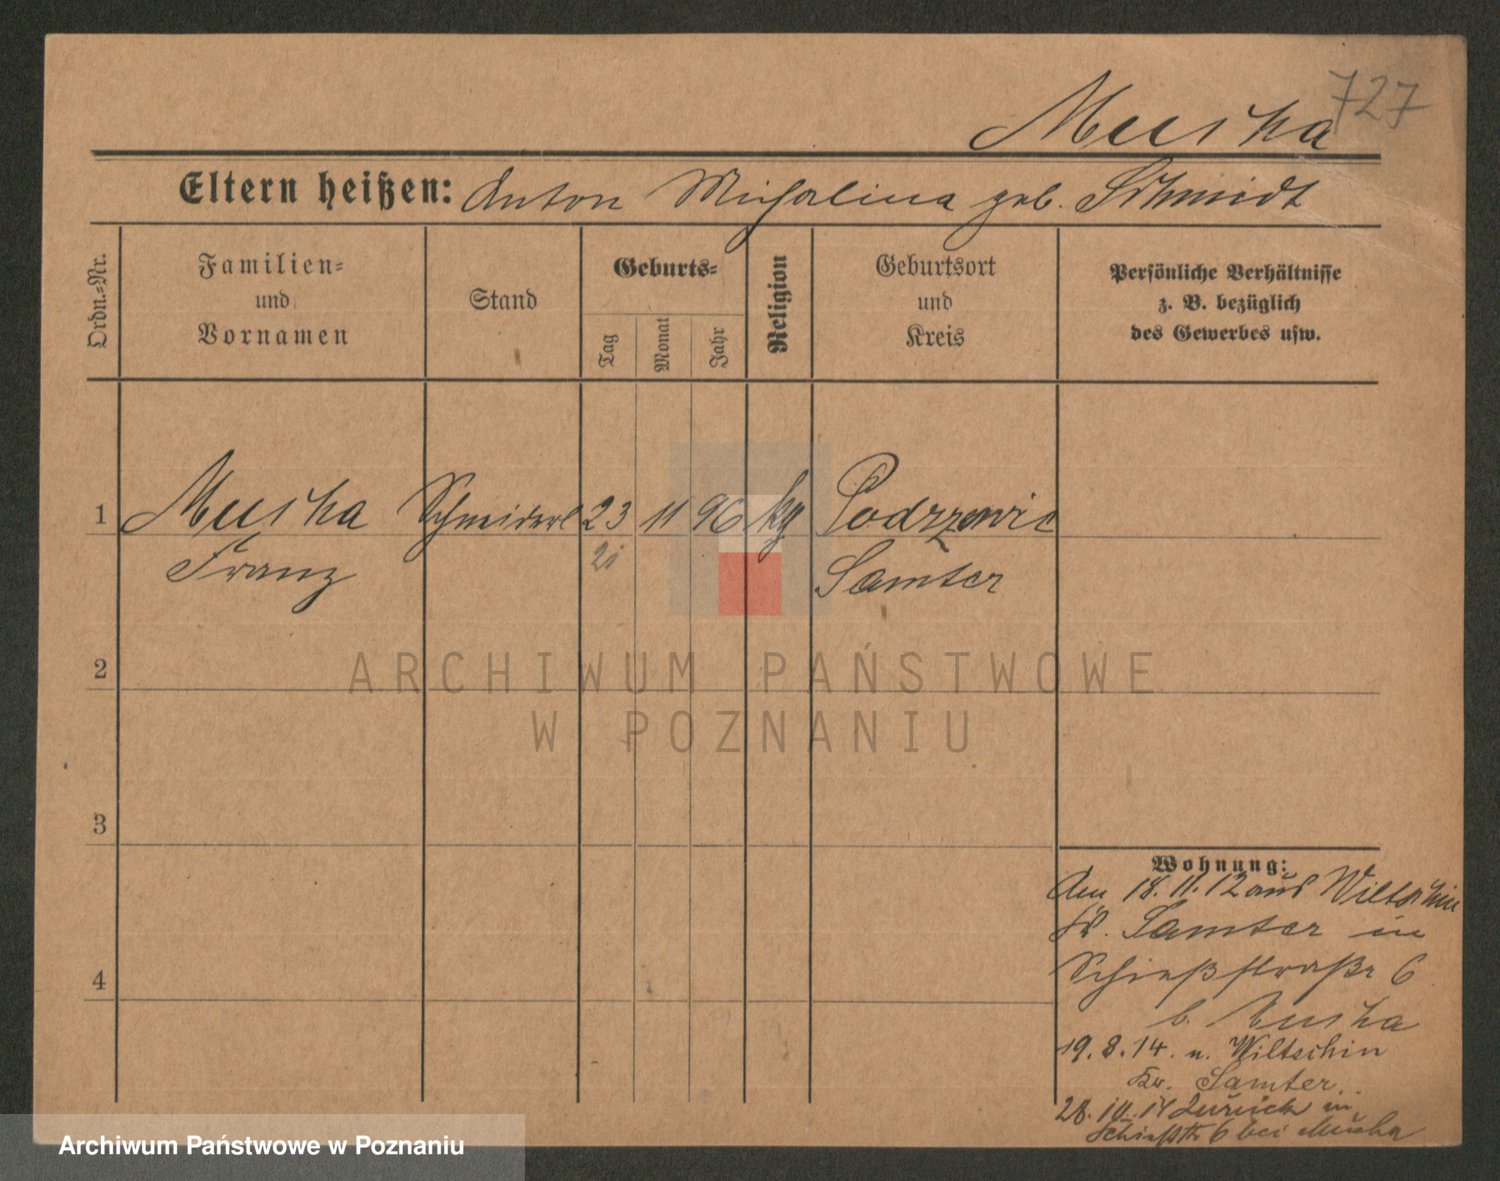 727
Mucha
Eltern heißen: Anton Michalina geb. Schmidt
Ordn.-Nr.
Familien-
und
Vornamen
Stand
Geburts-
Tag
Monat
Jahr
Religion
Geburtsort
und
Kreis
Persönliche Verhältnisse
z. B. bezüglich
des Gewerbes usw.
1 Mucha Schneiderl 23 11 96 kg Podrzewie
Franz 21 Samter
2
ARCHIWUM PAŃSTWOWE
W POZNANIU
3
4
Wohnung:
Am 18.11.12 aus Wiltschin
Kr. Samter in
Schießstraße 6
b. Mucha
19.8.14. n. Wiltschin
Kr. Samter.
28.10.14 Zurück in
Schießstr 6 bei Mucha
Archiwum Państwowe w Poznaniu